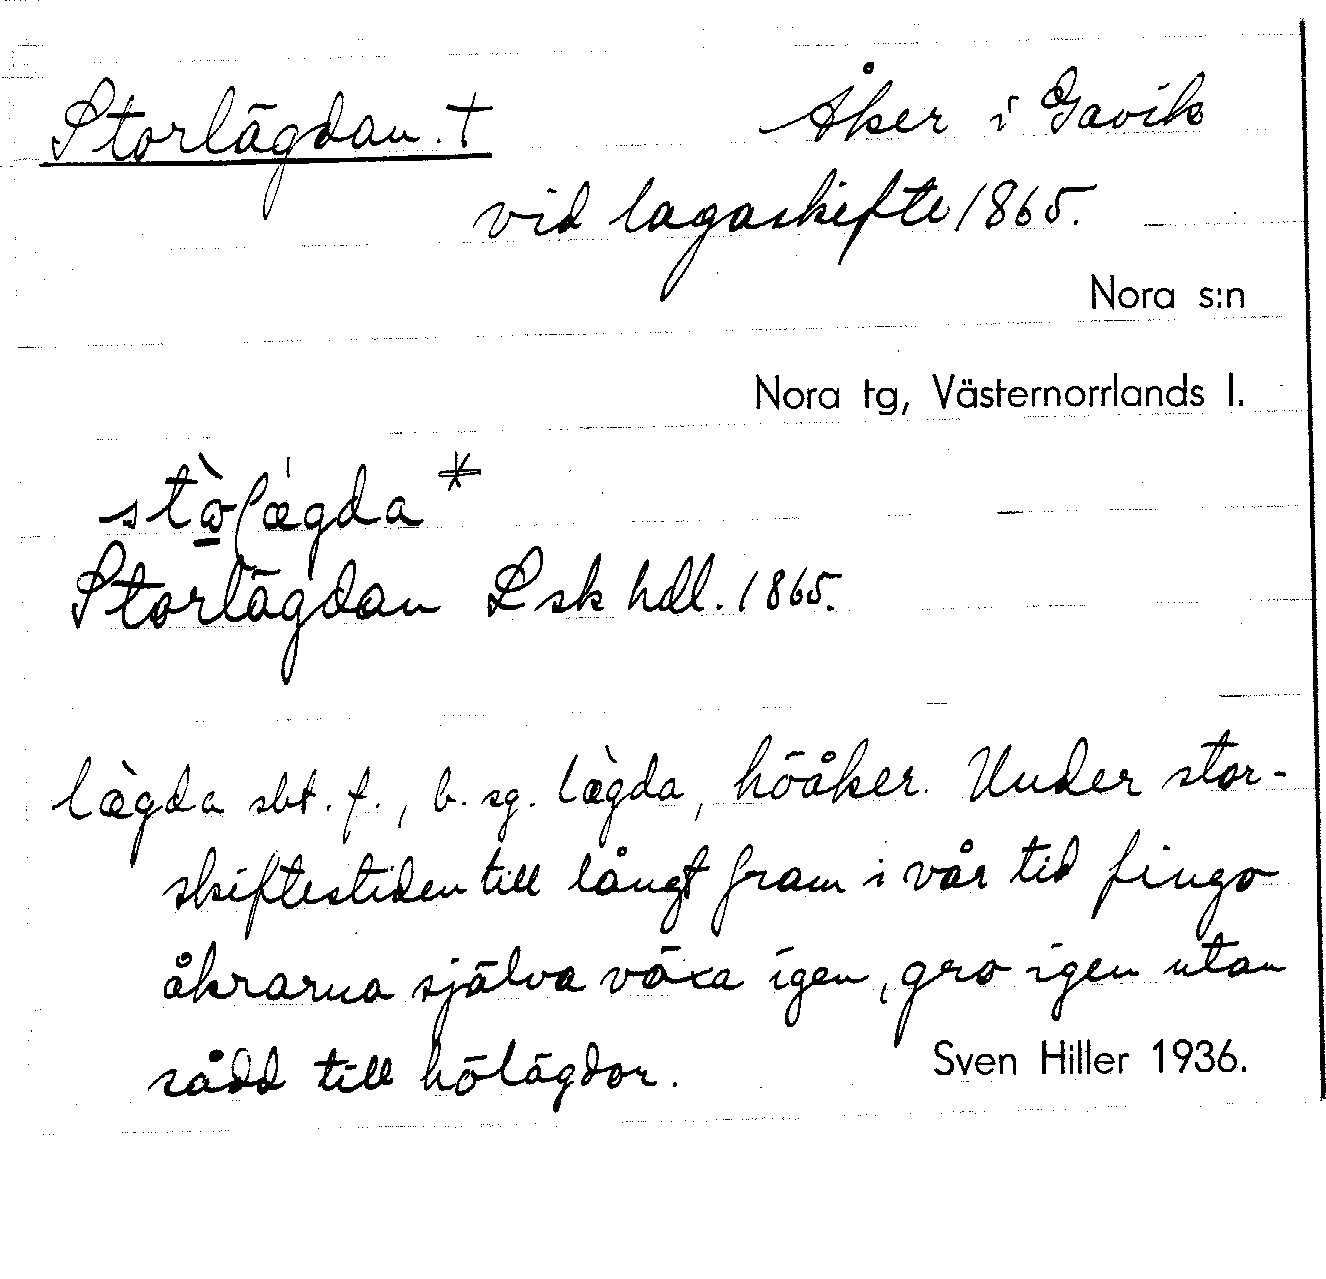 Storlägdan. †
Åker i Gavik
vid lagaskifte 1865.
Nora s:n
Nora tg, Västernorrlands l.
stò̱l'ægda *
Storlägdan Lsk hdl. 1865.
læ̀gda sbt. f., b. sg. læ̀gda, höåker. Under stor-
skiftestiden till långt fram i vår tid fingo
åkrarna själva växa igen, gro igen utan
sådd till hölägdor.
Sven Hiller 1936.